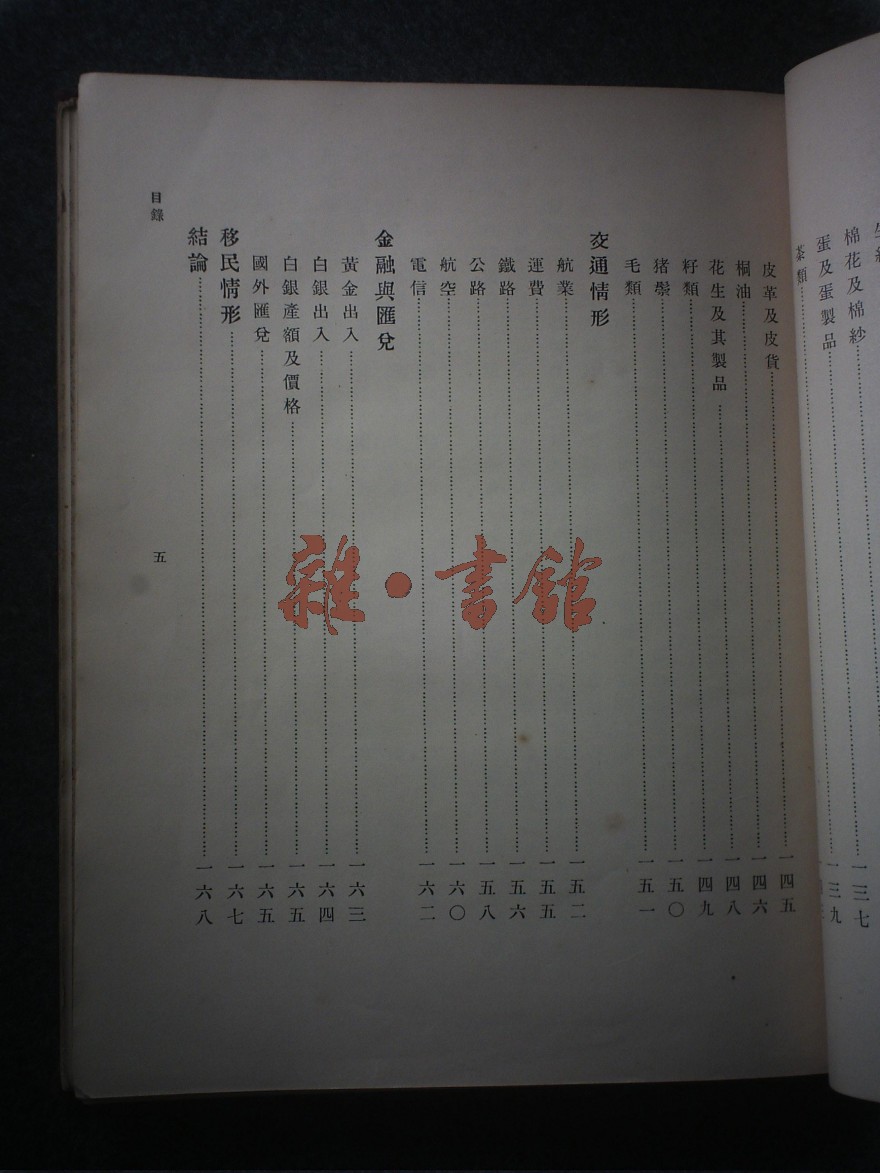 棉花及棉紗……一三七
蛋及蛋製品……一三九
茶類……
皮革及皮貨……一四五
桐油……一四六
籽類……一四八
花生及其製品……一四九
猪鬃……一五〇
毛類……一五一
交通情形
航業……一五二
運費……一五五
鐵路……一五六
公路……一五八
航空……一六〇
電信……一六二
金融與匯兌
黃金出入……一六三
白銀出入……一六四
白銀產額及價格……一六五
國外匯兌……一六五
移民情形……一六七
結論……一六八
目錄 五
雜·書館